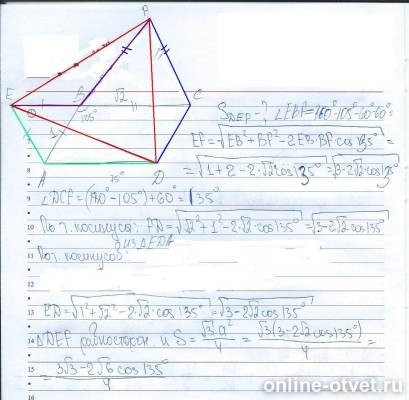 P
E
B
√2
C
105°
1
A
75°
D
S_DEF - ? ∠EBF = 360°-105°-60°-60° =
EF = √EB²+BF²-2EB·BF cos 135° =
= √1+2-2·√2 cos 135° = √3-2√2 cos 135°
∠DCF = (180°-105°)+60° = 135°
По т. косинусов: FD = √√2²+1²-2·√2·cos 135° = √3-2√2 cos 135°
Д из ΔEDA
По т. косинусов:
ED = √1²+√2²-2·√2 cos 135° = √3-2√2 cos 135°
ΔDEF равносторон. и S = √3 a²/4 = √3(3-2√2 cos 135°)/4 =
= 3√3-2√6 cos 135°/4
8
9
10
11
12
13
14
15
online-otvet.ru